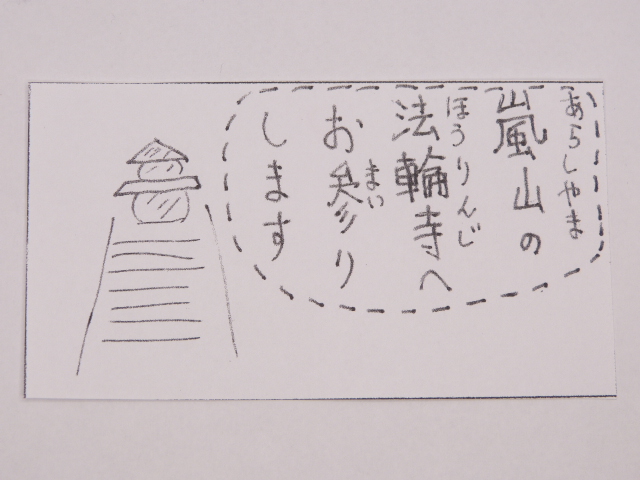 嵐山の
あらしやま
法輪寺へ
ほうりんじ
お参り
まい
します